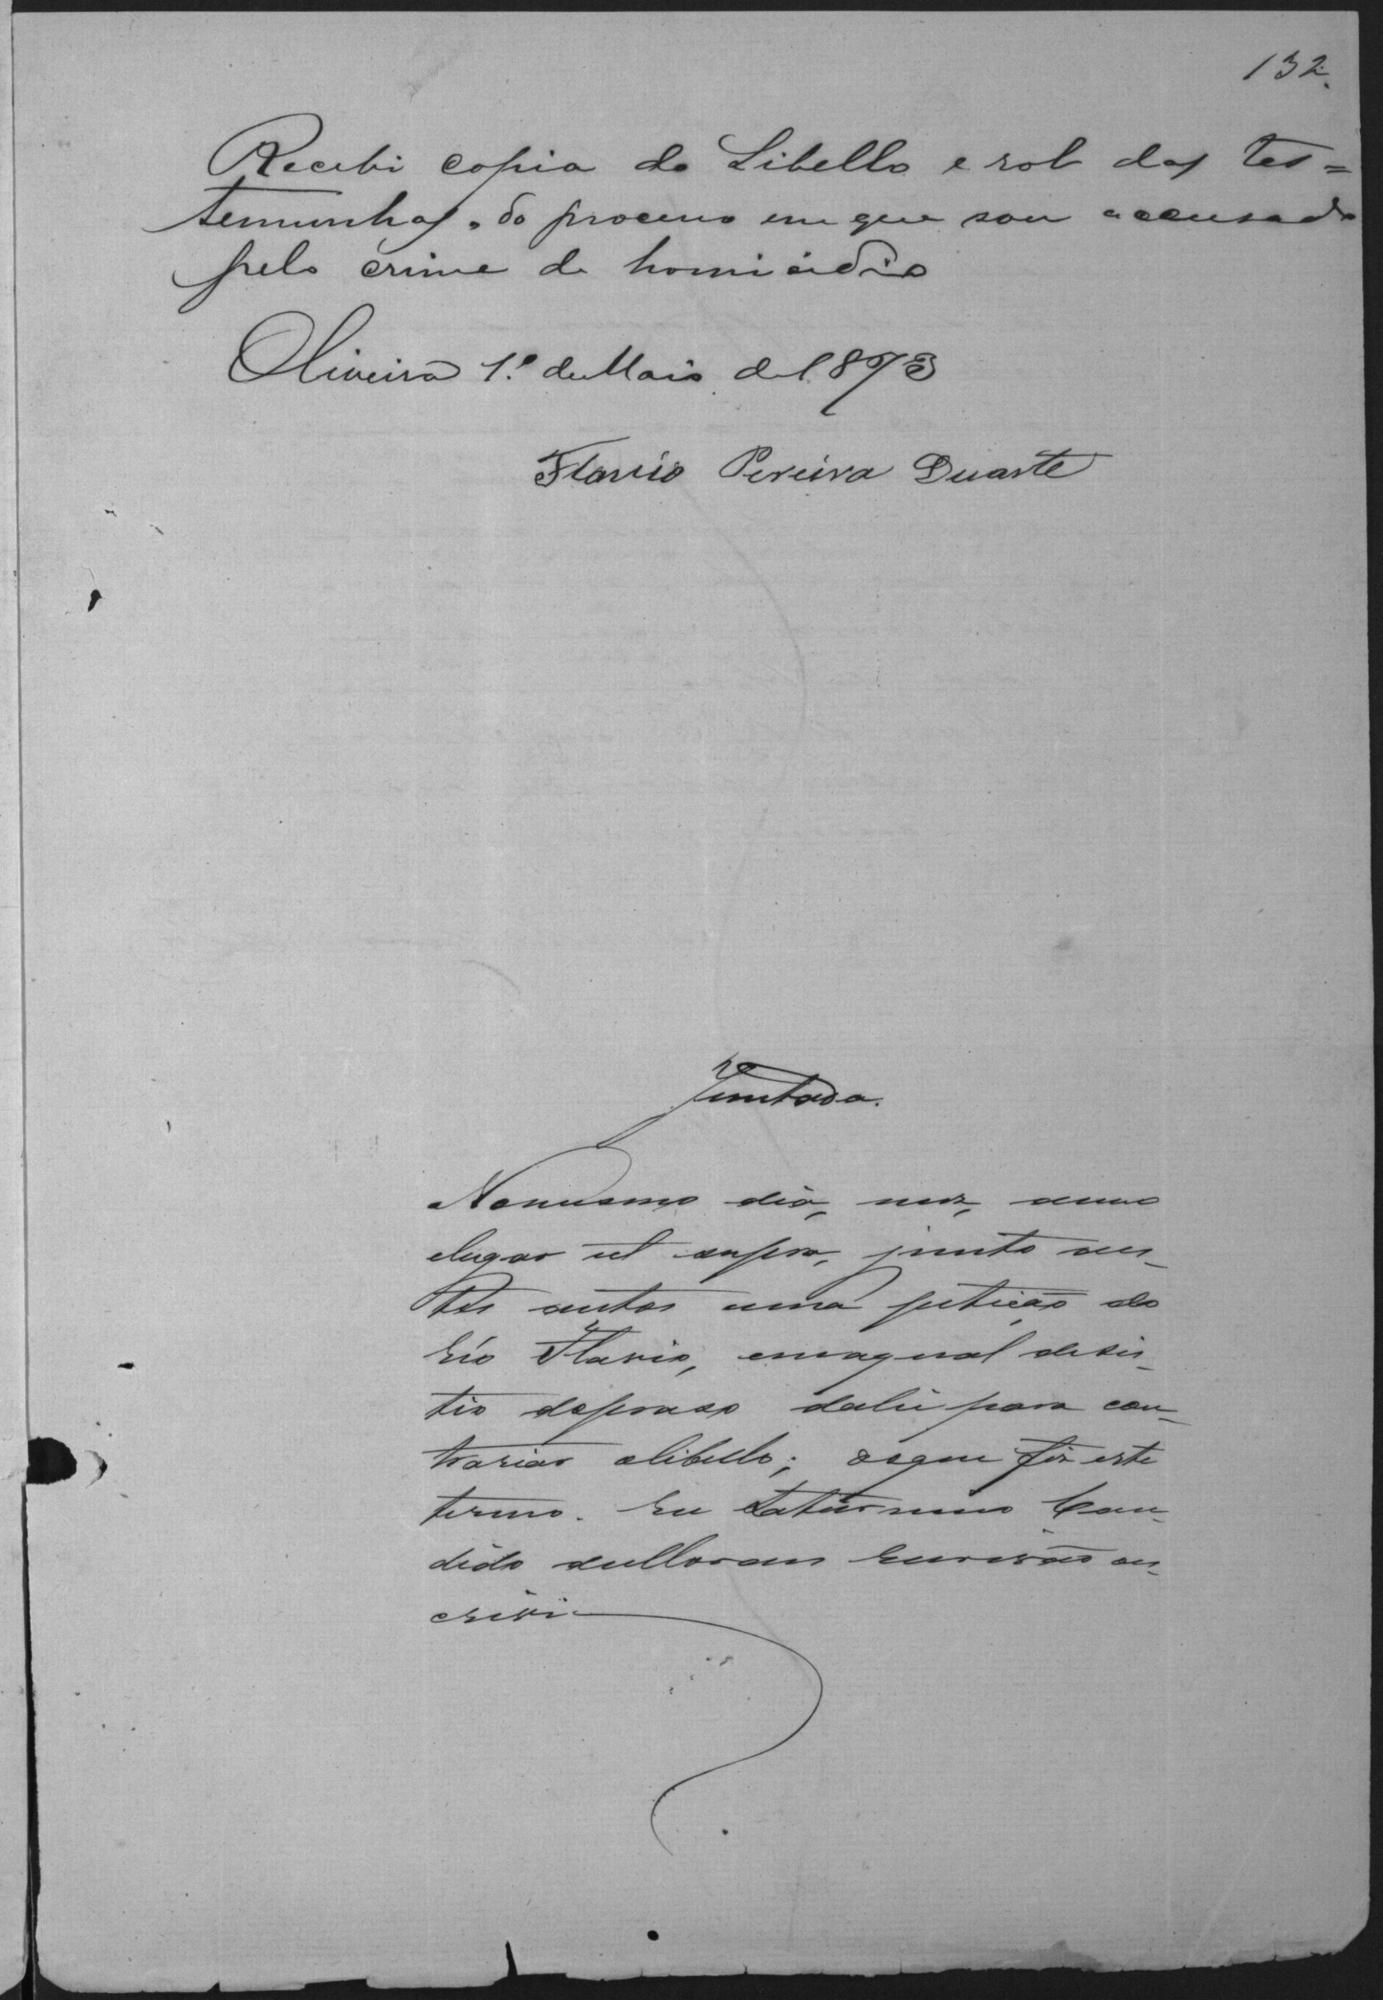 132.
Recebi copia do Libello e rol das tes=
temunhas, do processo em que sou accusado
pelo crime de homicidio
Oliveira 1.º de Maio de 1893
Flavio Pereira Duarte
Juntada.
No mesmo dia, mez, anno
e lugar ut supra, junto a es-
tes autos uma petição do
réo Flavio, em a qual desis-
tio do praso da lei para con-
trariar o libello; do que fiz este
termo. Eu Saturnino Can-
dido Escrivão es-
crivi